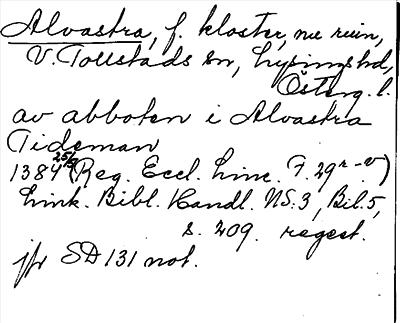 Alvastra, f. kloster, nu ruin,
V. Tollstads sn, Lysings hd,
Österg. l.
av abboten i Alvastra
Tideman
1384 25/3 (Reg. Eccl. Linc. F. 29r-v)
Link. Bibl. Handl. NS. 3, Bil. 5,
s. 209. regest.
jfr SD 131 not.